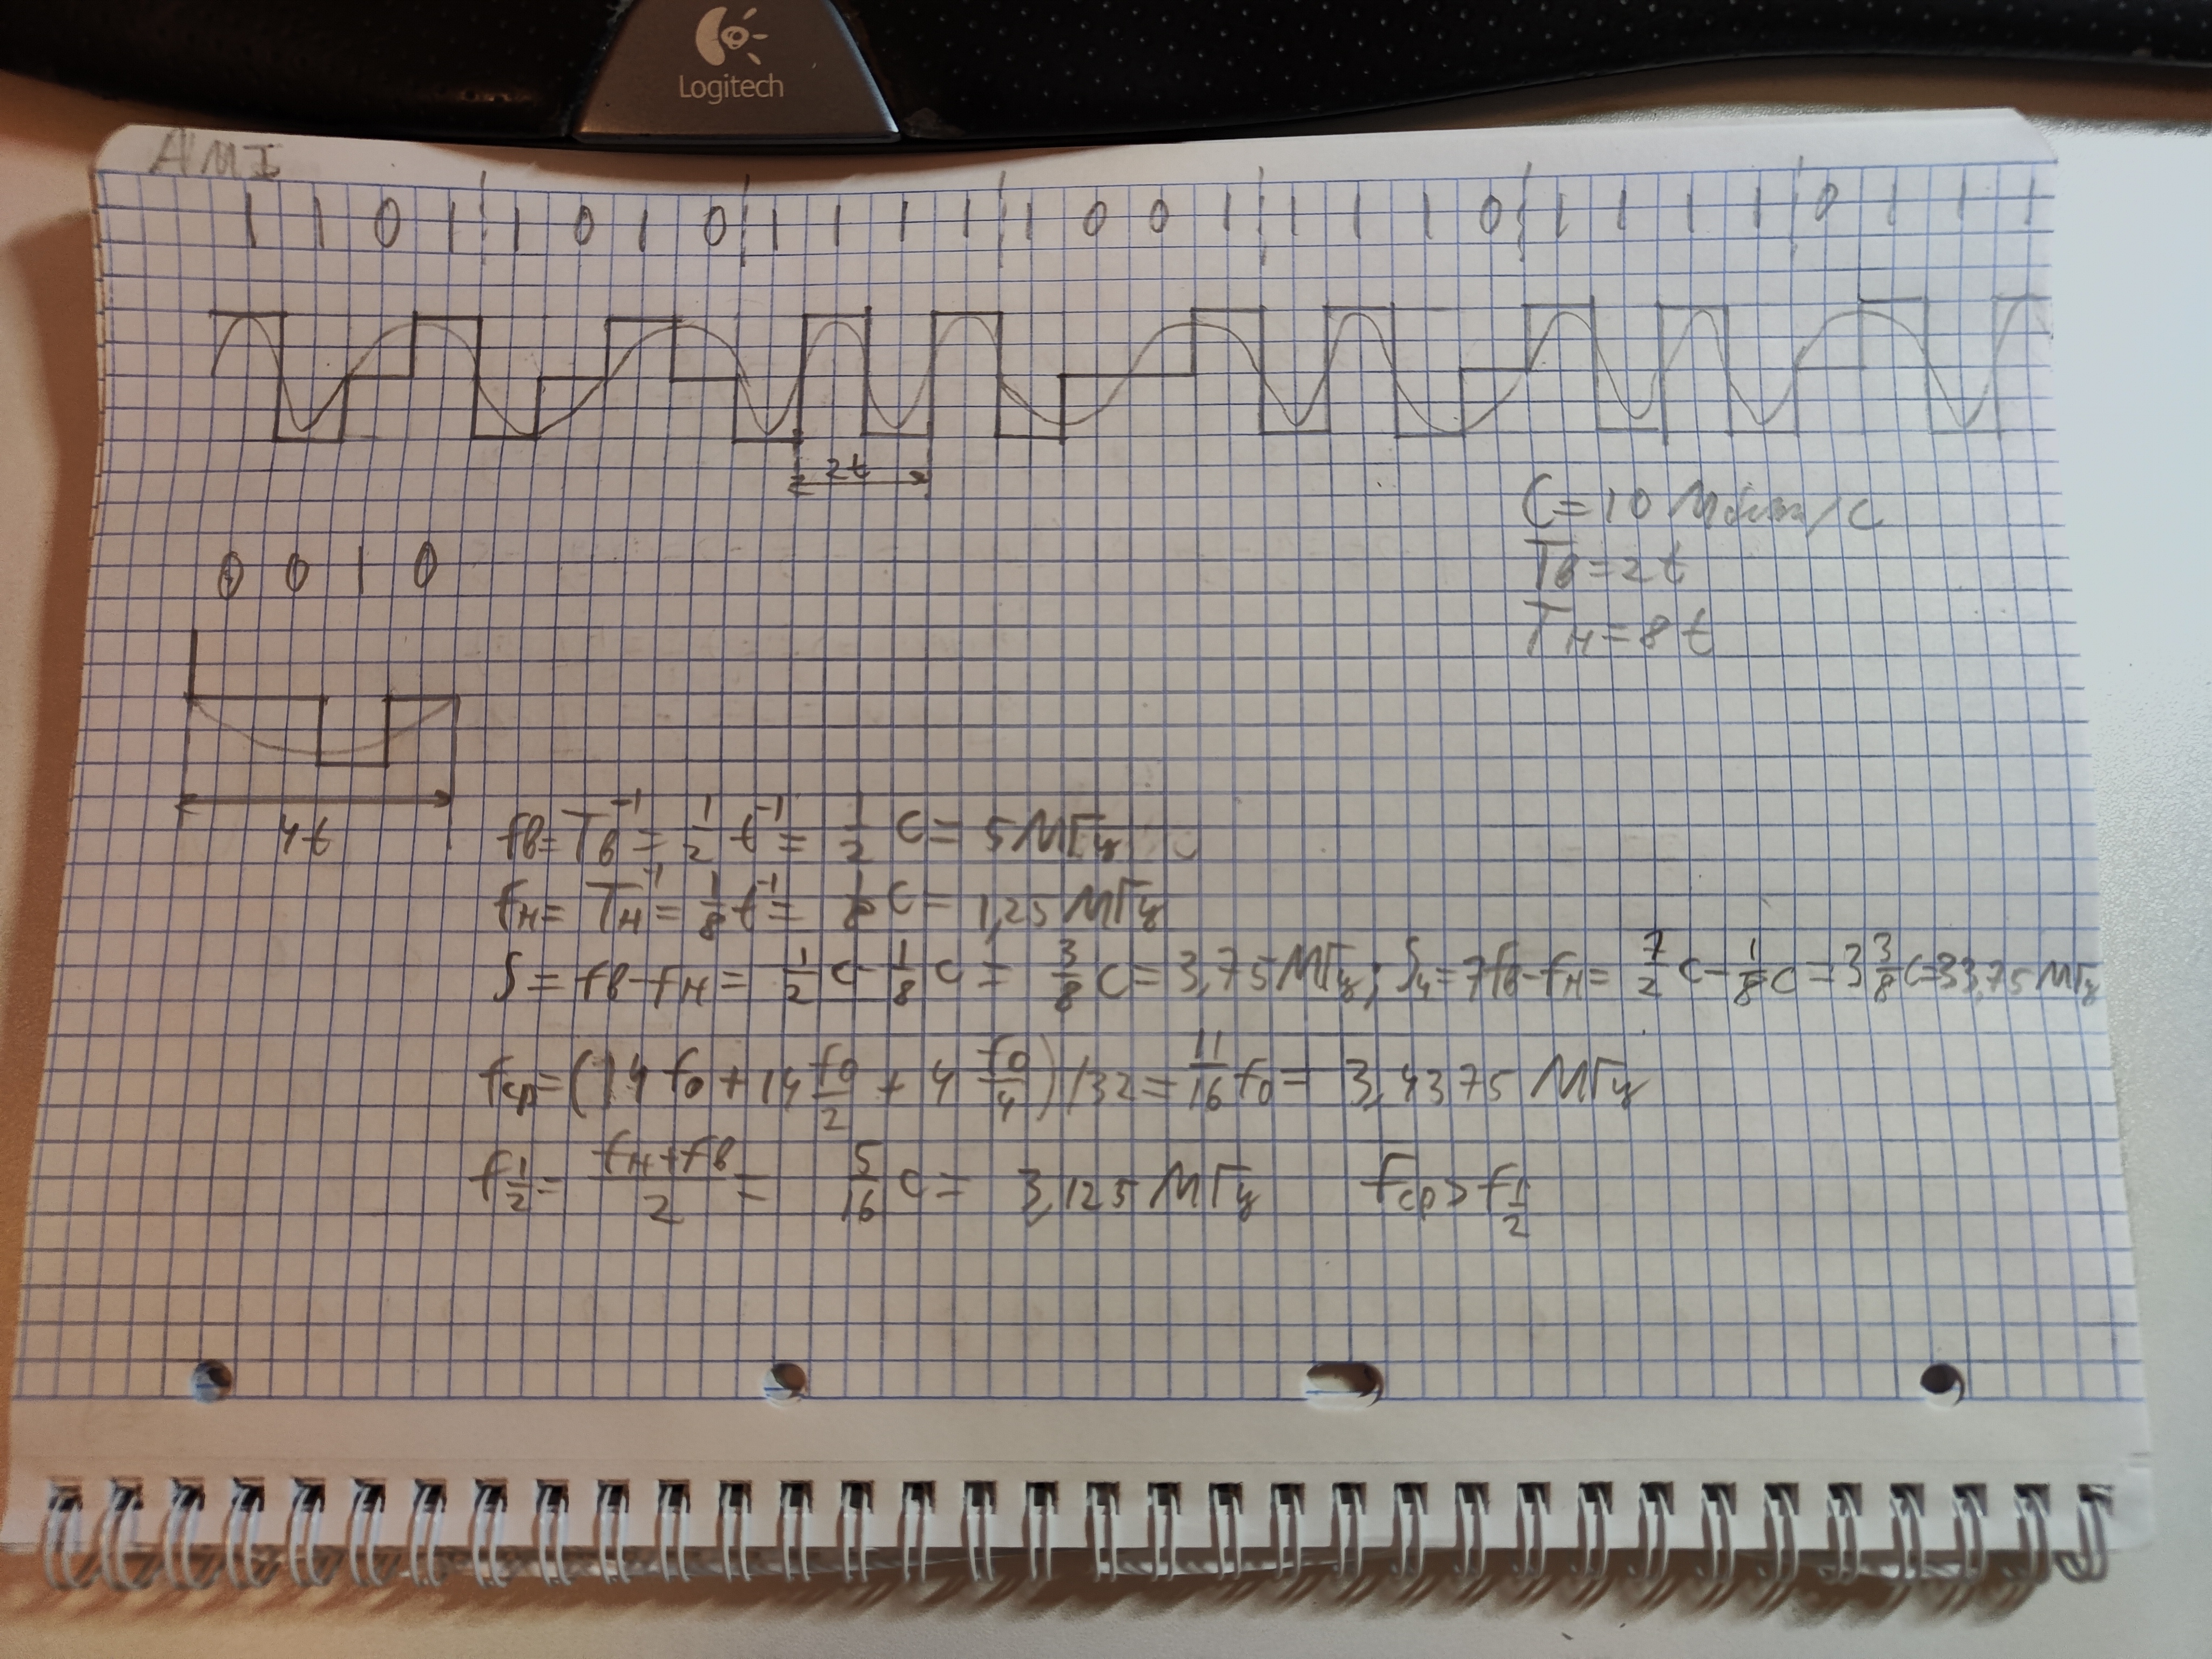 Logitech
AMI
1 1 0 1 1 0 1 0 1 1 1 1 1 0 0 1 1 1 1 0 1 1 1 1 0 1 1 1
2t
C = 10 Мбит/с
Tв = 2t
Tн = 8t
0 0 1 0
4t
fв = Tв⁻¹ = 1/2 t⁻¹ = 1/2 C = 5 МГц
fн = Tн⁻¹ = 1/8 t⁻¹ = 1/8 C = 1,25 МГц
S = fв - fн = 1/2 C - 1/8 C = 3/8 C = 3,75 МГц; S₄ = 7fв - fн = 7/2 C - 1/8 C = 3 3/8 C = 33,75 МГц
fср = (14 f0 + 14 f0/2 + 4 f0/4) / 32 = 11/16 f0 = 3,4375 МГц
f1/2 = (fн + fв)/2 = 5/16 C = 3,125 МГц fср > f1/2